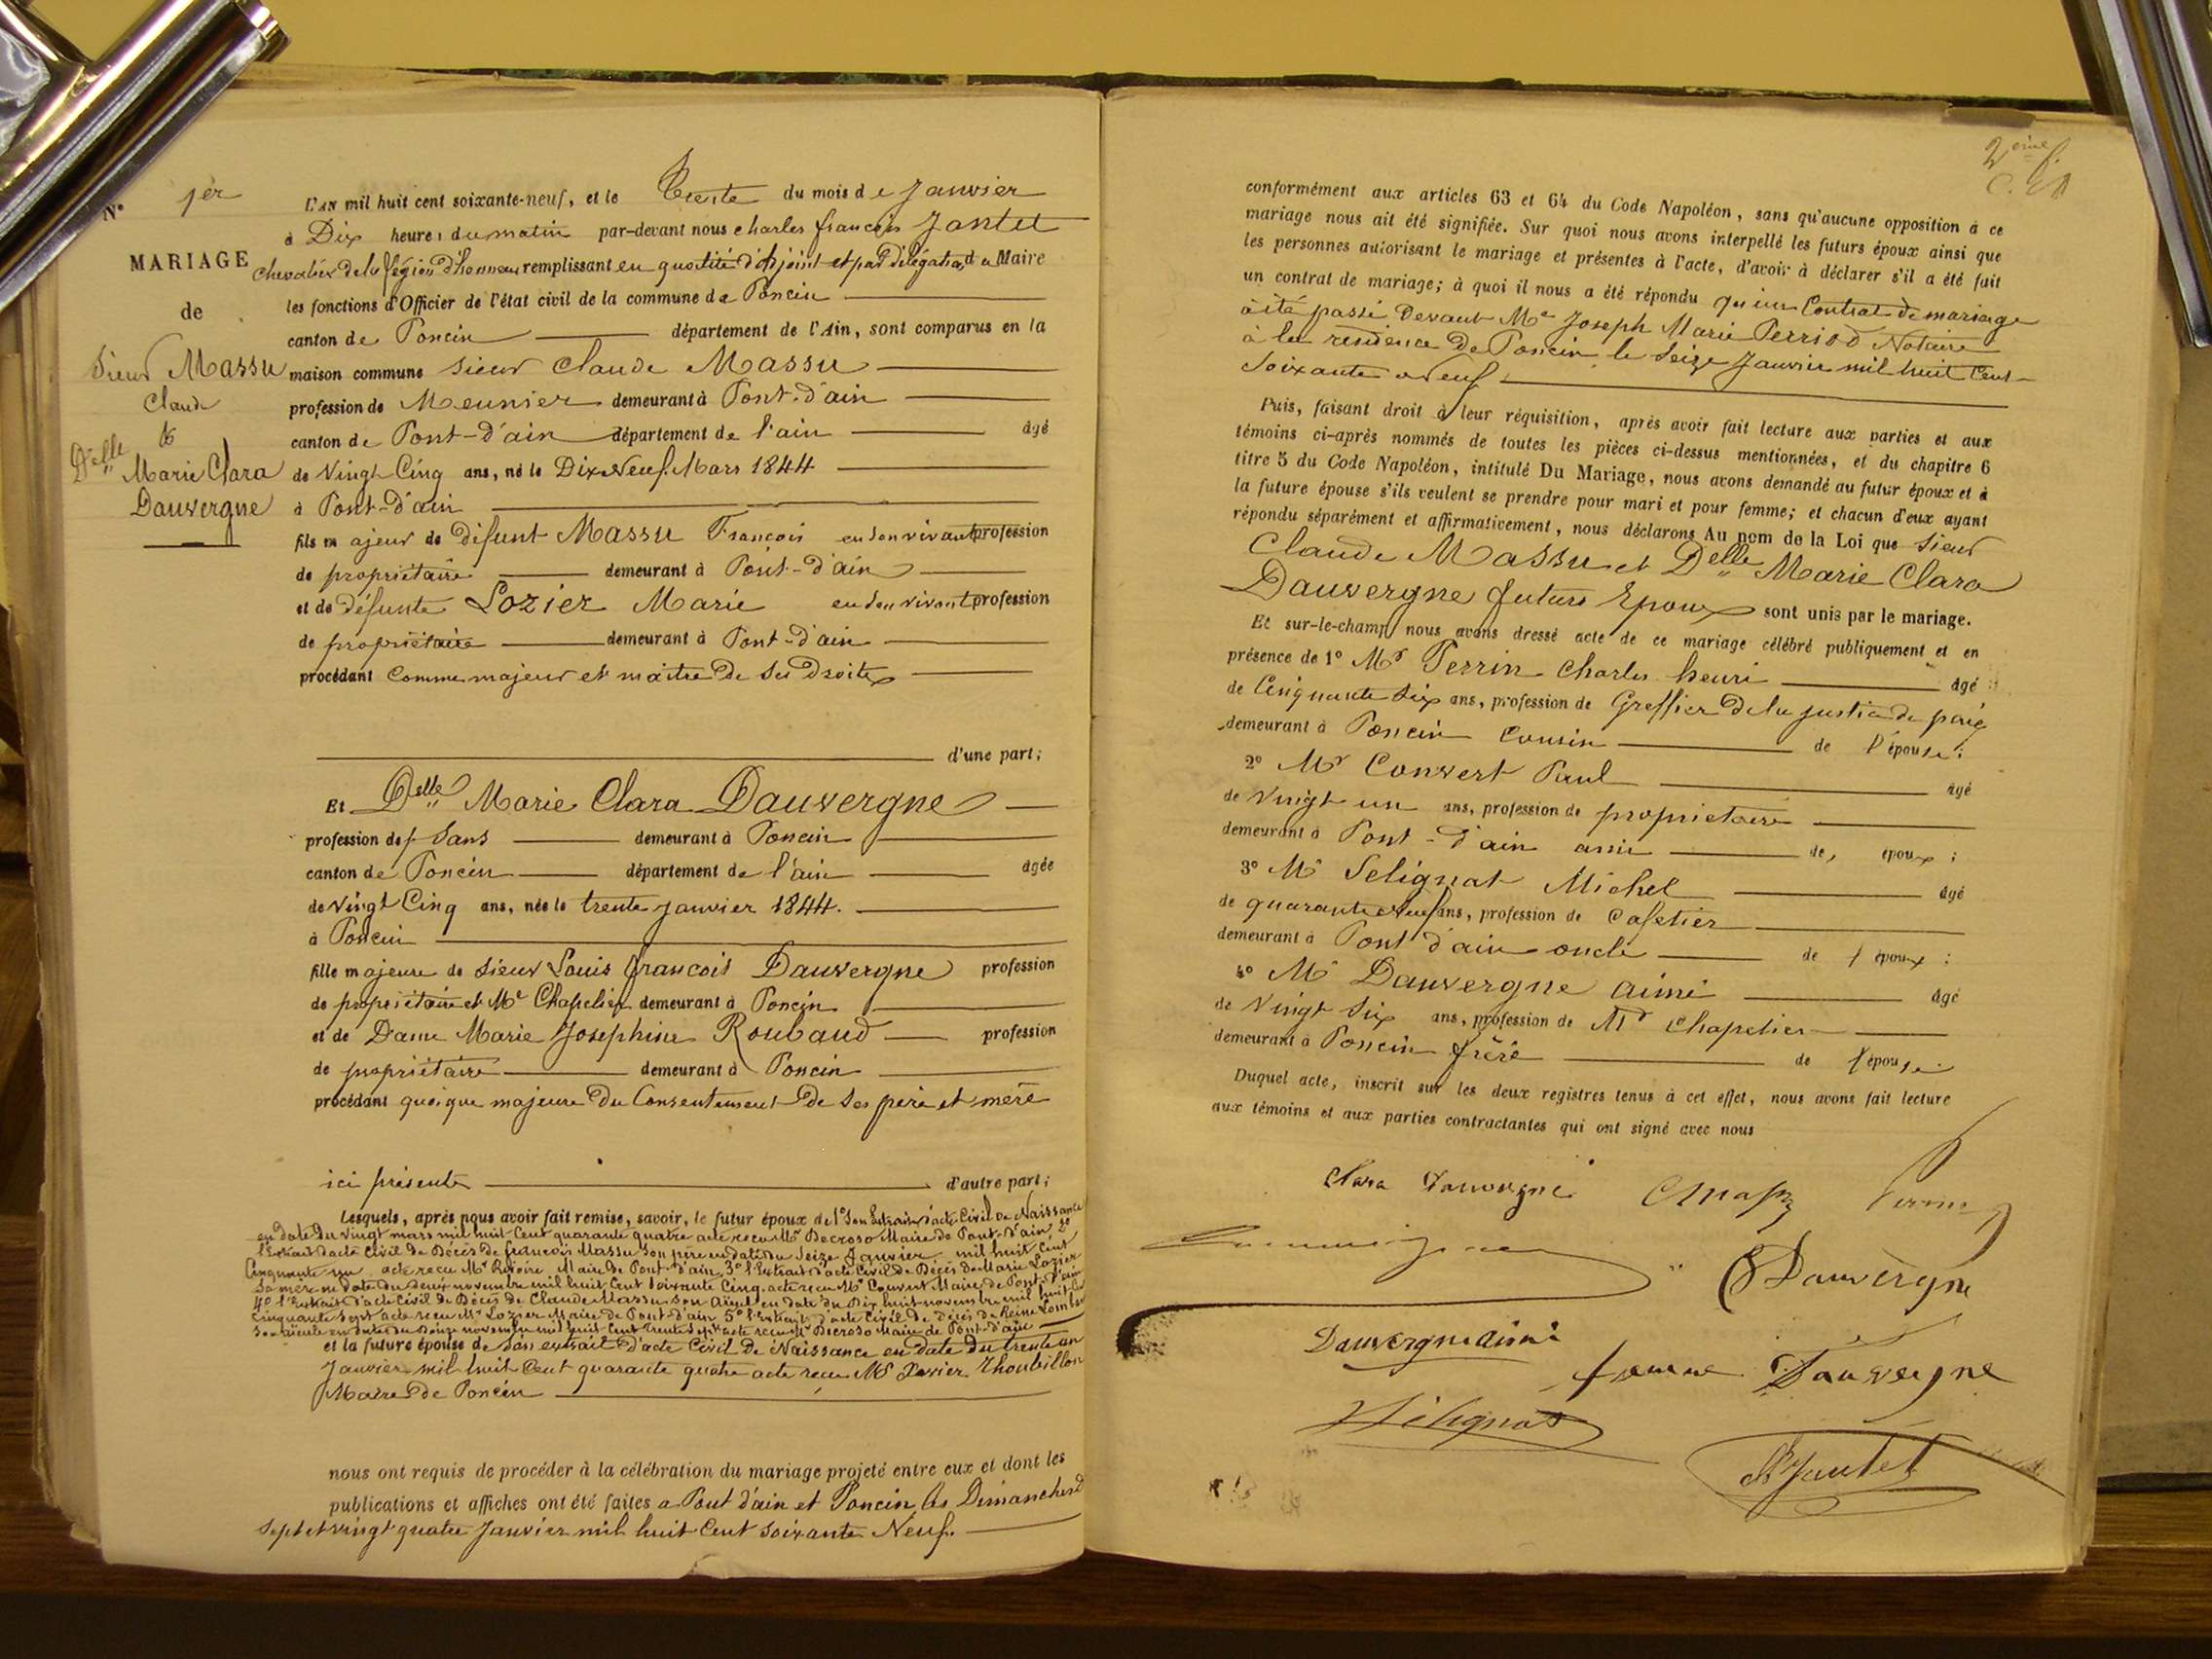 N° 1er
MARIAGE
de
Sieur Massu
Claude
&
Delle Marie Clara
Dauvergne
L'AN mil huit cent soixante-neuf, et le Trente du mois de Janvier
à Dix heures du matin par-devant nous charles francois Jantet
chevalier de la légion d'honneur remplissant en qualité d'adjoint et par délégation du Maire
les fonctions d'Officier de l'état civil de la commune de Poncin
canton de Poncin département de l'Ain, sont comparus en la
maison commune sieur Claude Massu
profession de Meunier demeurant à Pont-d'ain
canton de Pont-d'ain département de l'ain âgé
de Vingt Cinq ans, né le Dix Neuf Mars 1844
à Pont-d'ain
fils majeur de défunt Massu Francois en son vivant profession
de propriétaire demeurant à Pont-d'ain
et de défunte Lozier Marie en son vivant profession
de propriétaire demeurant à Pont-d'ain
procédant comme majeur et maitre de ses droits
d'une part;
Et Delle Marie Clara Dauvergne
profession de Sans demeurant à Poncin
canton de Poncin département de l'ain âgée
de Vingt Cinq ans, née le trente janvier 1844.
à Poncin
fille majeure de Sieur Louis francois Dauvergne profession
de propriétaire et Md Chapelier demeurant à Poncin
et de Dame Marie Josephine Roubaud profession
de propriétaire demeurant à Poncin
procédant quoique majeure du Consentement de ses père et mère
ici présents d'autre part;
Lesquels, après nous avoir fait remise, savoir, le futur époux de 1° Son Extrait d'acte Civil de Naissance
en date du vingt mars mil huit Cent quarante quatre acte recu Mr Decroso Maire de Pont-d'ain, 2°
l'Extrait d'acte Civil de Décès de francois Massu son père en date du Seize Janvier mil huit Cent
Cinquante un acte recu Mr Maire de Pont-d'ain, 3° l'Extrait d'acte Civil de Décès de Marie Lozier
Sa mère en date du deux novembre mil huit Cent soixante Cinq acte recu Mr Convert Maire de Pont-d'ain
4° l'Extrait d'acte Civil de Décès de Claude Massu son aieul en date du Dix huit novembre mil huit Cent
Cinquante Sept acte recu Mr Lozier Maire de Pont-d'ain 5° l'Extrait d'acte Civil de décès de Reine
Son aieule en date du Douze novembre mil huit Cent trente Sept acte recu Mr Decroso Maire de Pont-d'ain
et la future épouse de Son extrait d'acte Civil de Naissance en date du trente un
Janvier mil huit Cent quarante quatre acte recu Mr Xavier Thoubillon
Maire de Poncin
nous ont requis de procéder à la célébration du mariage projeté entre eux et dont les
publications et affiches ont été faites a Pont d'ain et Poncin les Dimanches
sept et vingt quatre Janvier mil huit Cent soixante Neuf.
2eme f.
conformément aux articles 63 et 64 du Code Napoléon, sans qu'aucune opposition à ce
mariage nous ait été signifiée. Sur quoi nous avons interpellé les futurs époux ainsi que
les personnes autorisant le mariage et présentes à l'acte, d'avoir à déclarer s'il a été fait
un contrat de mariage; à quoi il nous a été répondu qu'un Contrat de mariage
a été passé Devant Me Joseph Marie Perriod Notaire
à la résidence de Poncin le Seize Janvier mil huit Cent
Soixante Neuf
Puis, faisant droit à leur réquisition, après avoir fait lecture aux parties et aux
témoins ci-après nommés de toutes les pièces ci-dessus mentionnées, et du chapitre 6
titre 5 du Code Napoléon, intitulé Du Mariage, nous avons demandé au futur époux et à
la future épouse s'ils veulent se prendre pour mari et pour femme; et chacun d'eux ayant
répondu séparément et affirmativement, nous déclarons Au nom de la Loi que Sieur
Claude Massu et Delle Marie Clara
Dauvergne futurs Epoux sont unis par le mariage.
Et sur-le-champ nous avons dressé acte de ce mariage célébré publiquement et en
présence de 1° Mr Perrin Charles henri âgé
de Cinquante six ans, profession de Greffier de la justice de paix
demeurant à Poncin Cousin de l'épouse;
2° Mr Convert Paul âgé
de vingt un ans, profession de propriétaire
demeurant à Pont-d'ain ami de époux;
3° Mr Sélignat Michel âgé
de quarante neuf ans, profession de Cafetier
demeurant à Pont d'ain oncle de l'époux;
4° Mr Dauvergne aimé âgé
de Vingt Six ans, profession de Md Chapelier
demeurant à Poncin frère de l'épouse
Duquel acte, inscrit sur les deux registres tenus à cet effet, nous avons fait lecture
aux témoins et aux parties contractantes qui ont signé avec nous
Clara Dauvergne CMassu Perrin
Dauvergne
Dauvergne aimé
femme Dauvergne
Sélignat
Jantet